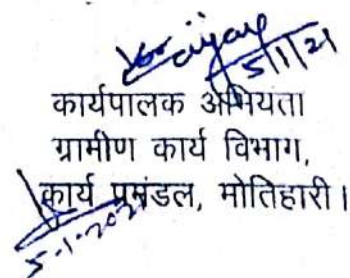 5/1/21
कार्यपालक अभियंता
ग्रामीण कार्य विभाग,
कार्य प्रमंडल, मोतिहारी।
5-1-2021